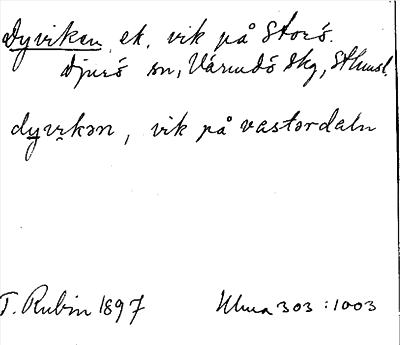 Dyviken, ek. vik på Storö.
Djurö sn, Värmdö skg, Sthmsl.
dyvikən, vik på vastərdaln
T. Rubin 1897 Ulma 303:1003